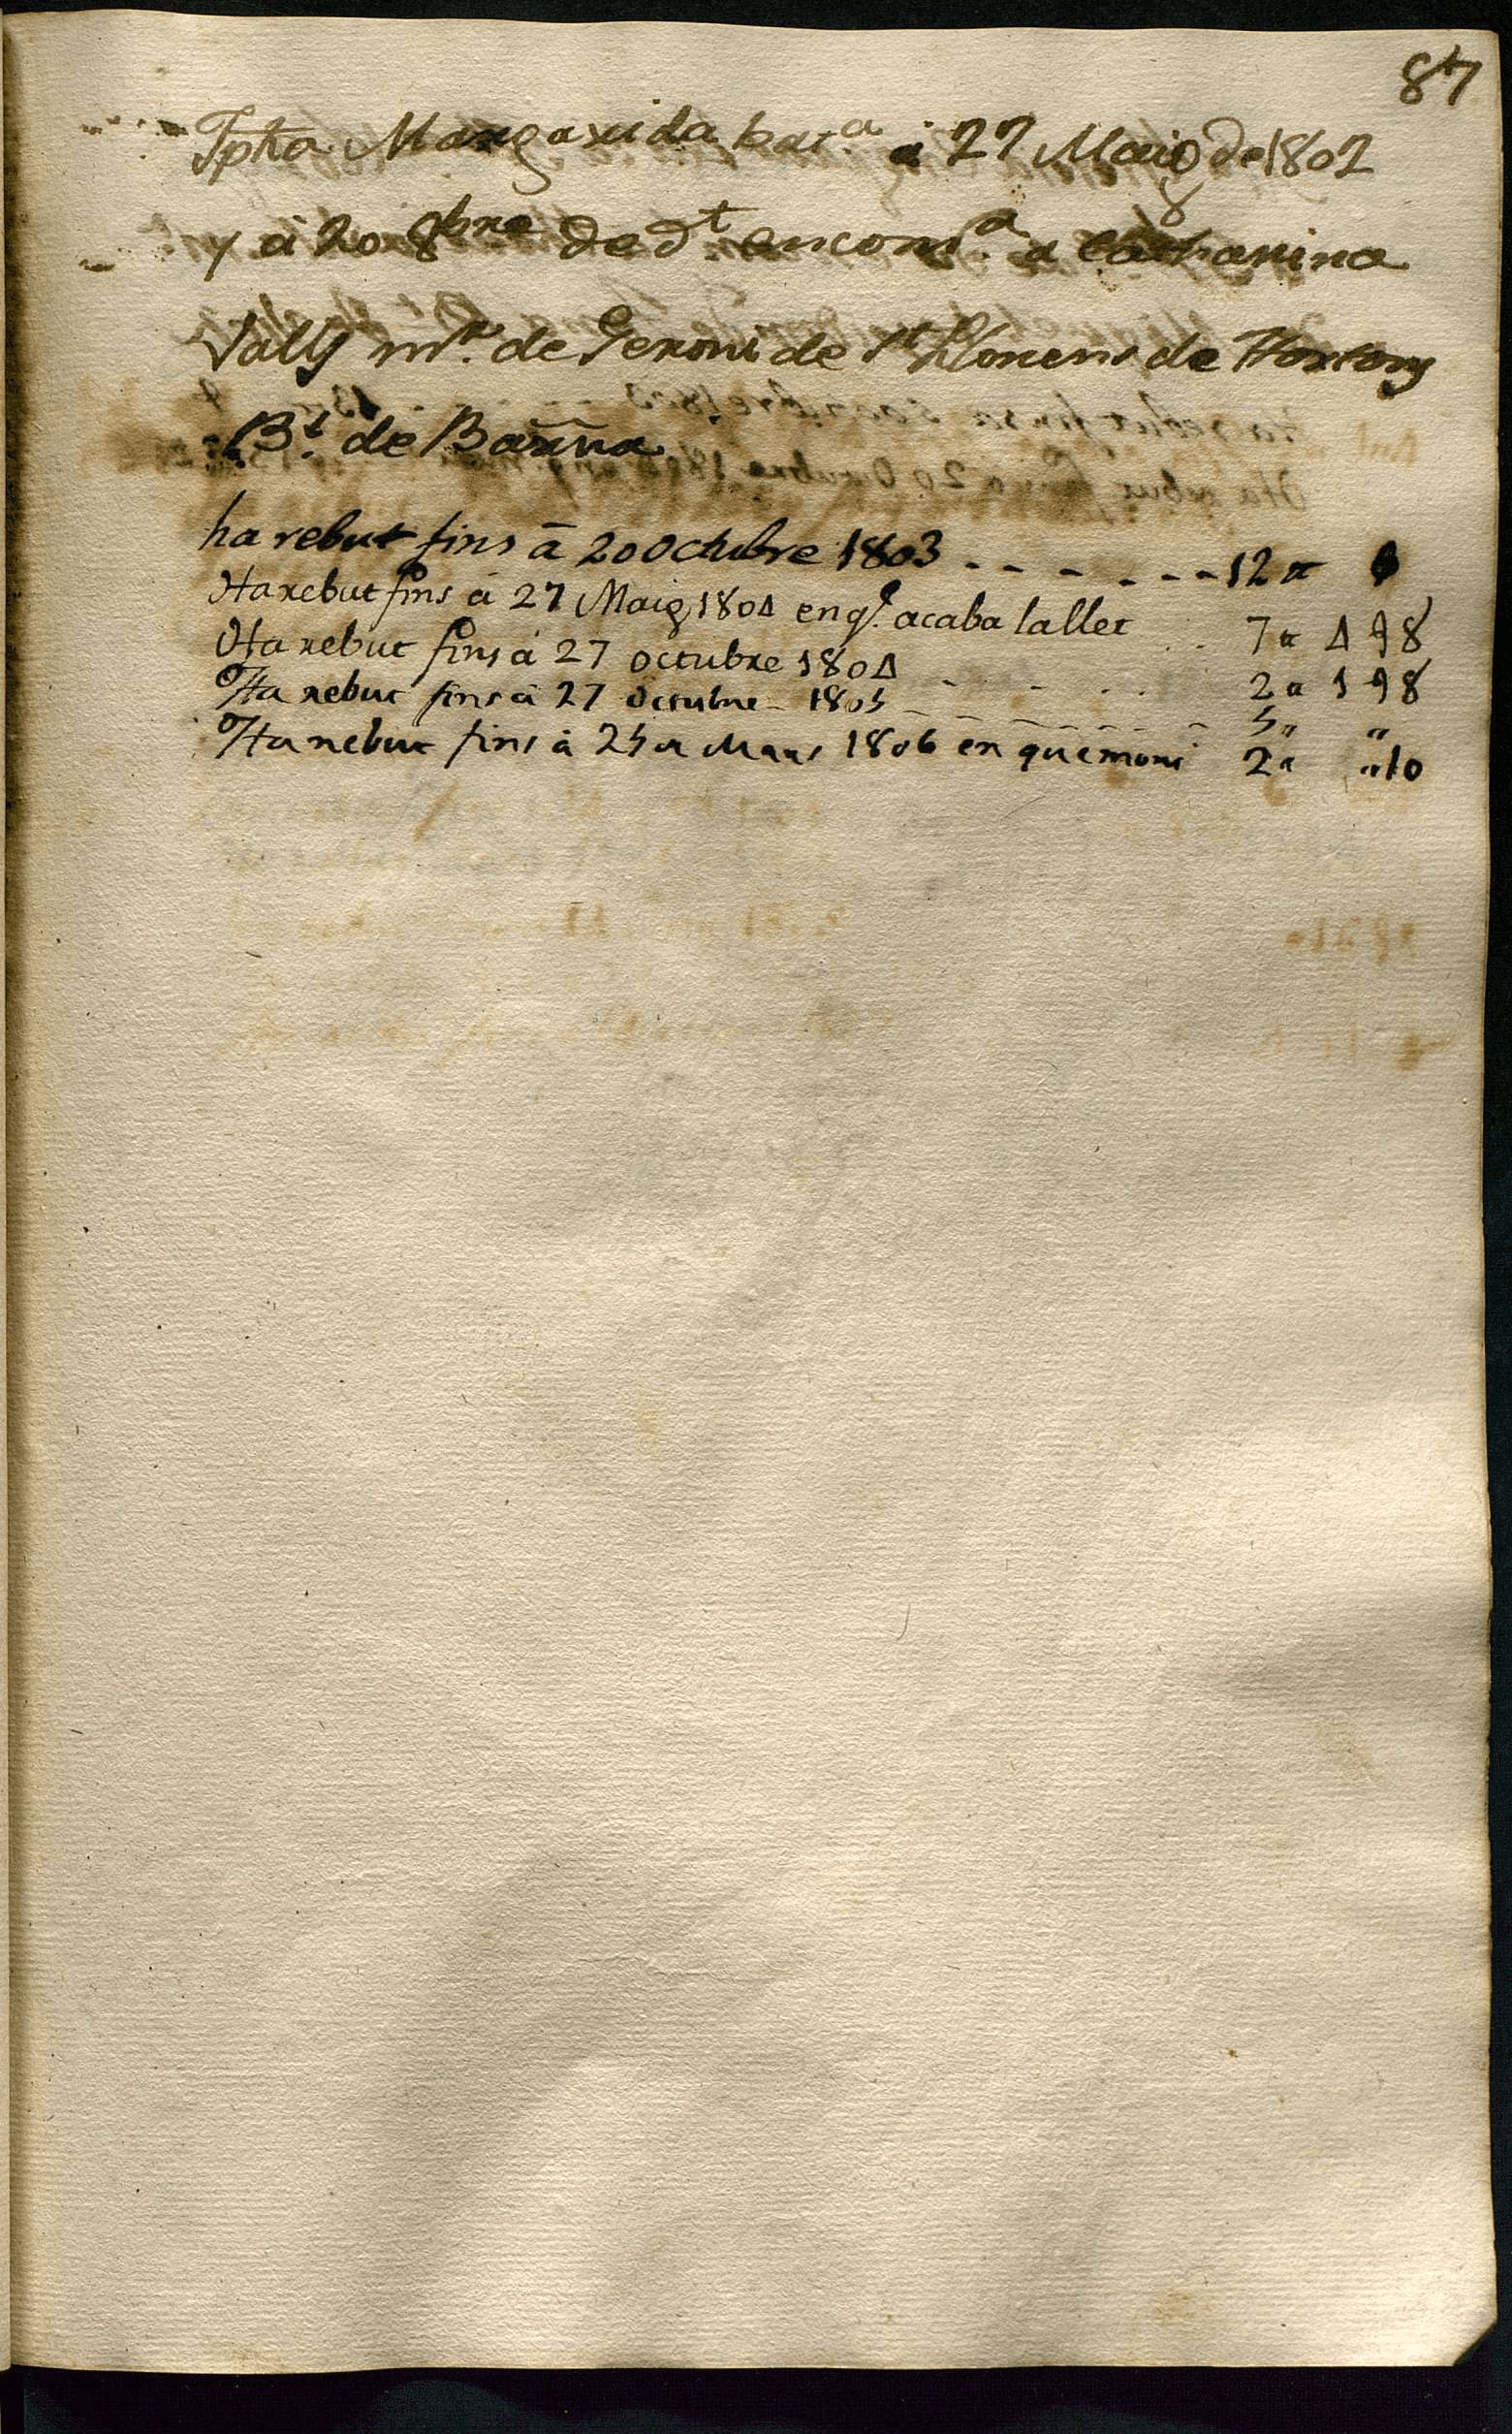 87
Jpha Margarida bat.ª á 27 Maig de 1802
y á 20 8bre de dt encom.ª a Catharina
Valls mr. de Geroni de St Llorens de Hortons
Bt. de Barña
ha rebut fins á 20 Octubre 1803 - - - - - - 12 ,,
Ha rebut fins á 27 Maig 1804 en q.e acaba la llet 7 ,, 4 ,, 8
Ha rebut fins á 27 octubre 1804 - - - - 2 ,, 1 ,, 8
Ha rebut fins á 27 Octubre 1805 - - - - - - - 5 ,, ,,
Ha rebut fins á 25 a Mars 1806 en que morí 2 ,, ,, 10